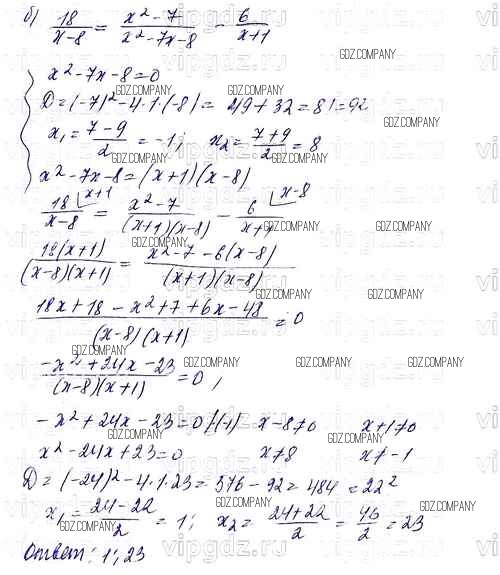 б) 18/(x-8) = (x²-7)/(x²-7x-8) - 6/(x+1)
x²-7x-8=0
D=(-7)²-4·1·(-8)= 49+32=81=9²
x₁=(7-9)/2=-1; x₂=(7+9)/2=8
x²-7x-8=(x+1)(x-8)
18/(x-8) ⌊x+1 = (x²-7)/((x+1)(x-8)) - 6/(x+1) ⌊x-8
18(x+1)/((x-8)(x+1)) = (x²-7-6(x-8))/((x+1)(x-8))
(18x+18-x²+7+6x-48)/((x-8)(x+1)) = 0
(-x²+24x-23)/((x-8)(x+1)) = 0,
-x²+24x-23=0 /·(-1) x-8≠0 x+1≠0
x²-24x+23=0 x≠8 x≠-1
D=(-24)²-4·1·23=576-92=484=22²
x₁=(24-22)/2=1; x₂=(24+22)/2=46/2=23
Ответ: 1; 23